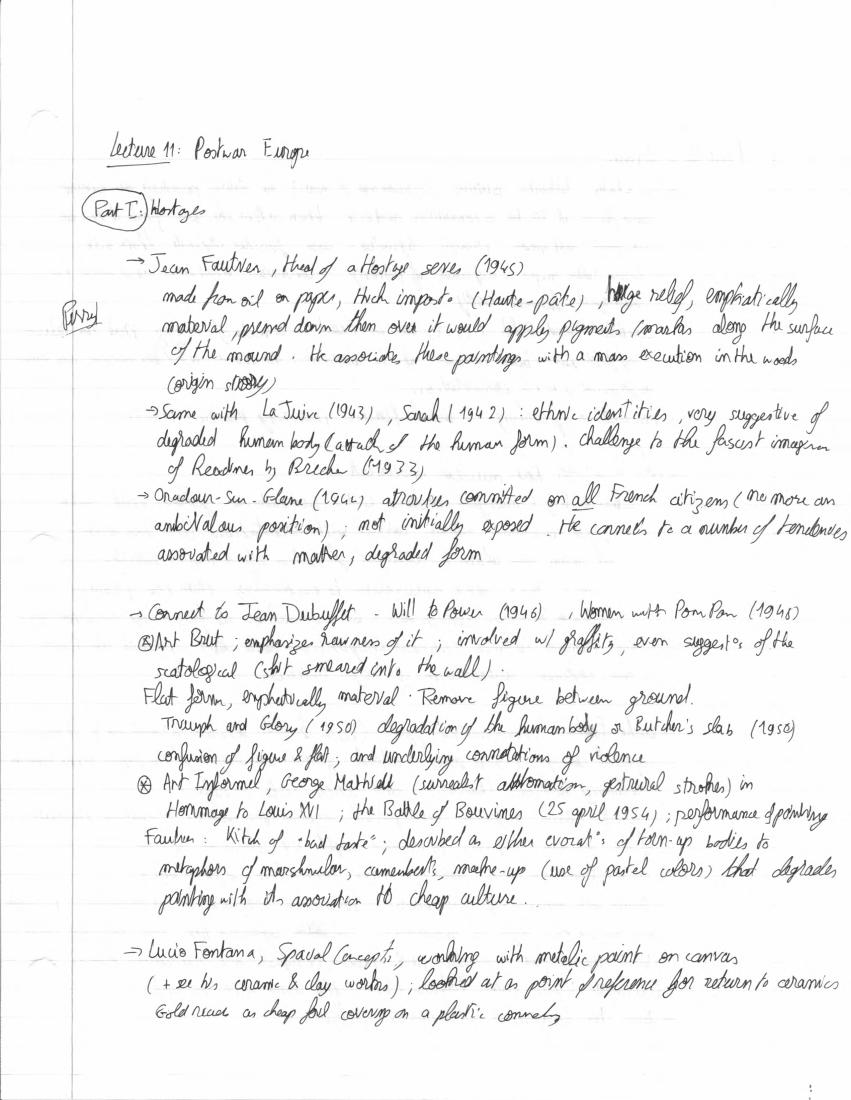 Lecture 11: Postwar Europe
Part I: Hostages
→ Jean Fautrier, Head of a Hostage series (1945)
made from oil on paper, thick impasto (Haute-pâte), huge relief, emphatically
material, pressed down then over it would apply pigments/marks along the surface
of the mound. He associates these paintings with a mass execution in the woods
(origin story)
→ Same with La Juive (1943), Sarah (1942): ethnic identities, very suggestive of
degraded human body (attack of the human form). challenge to the fascist
of Readiness by Brecker (1933)
→ Oradour-Sur-Glane (1944) atrocities committed on all French citizens (no more an
ambivalous position); not initially exposed. He connects to a number of tendences
associated with matter, degraded form
→ Connect to Jean Dubuffet - Will to Power (1946), Women with Pom Pom (1946)
⊗ Art Brut; emphasizes rawness of it; involved w/ graffity, even suggest°s of the
scatological (shit smeared into the wall).
Flat form, emphatically material. Remove figure between ground.
Triumph and Glory (1950) degradation of the human body or Butcher's slab (1950)
confusion of figure & flat; and underlying connotations of violence
⊗ Art Informel, George Mathieu (surrealist automation, gestural strokes) in
Hommage to Louis XVI; the Battle of Bouvines (25 april 1954); performance of painting
Fautrier: Kitch of "bad taste"; described as either evocat°s of torn-up bodies to
metaphors of marshmalow, camemberts, make-up (use of pastel colors) that degrades
painting with its association to cheap culture.
→ Lucio Fontana, Spatial Concepts, working with metalic paint on canvas
(+ see his ceramic & clay works); looked at as point of reference for return to ceramics
Gold reads as cheap foil covering on a plastic